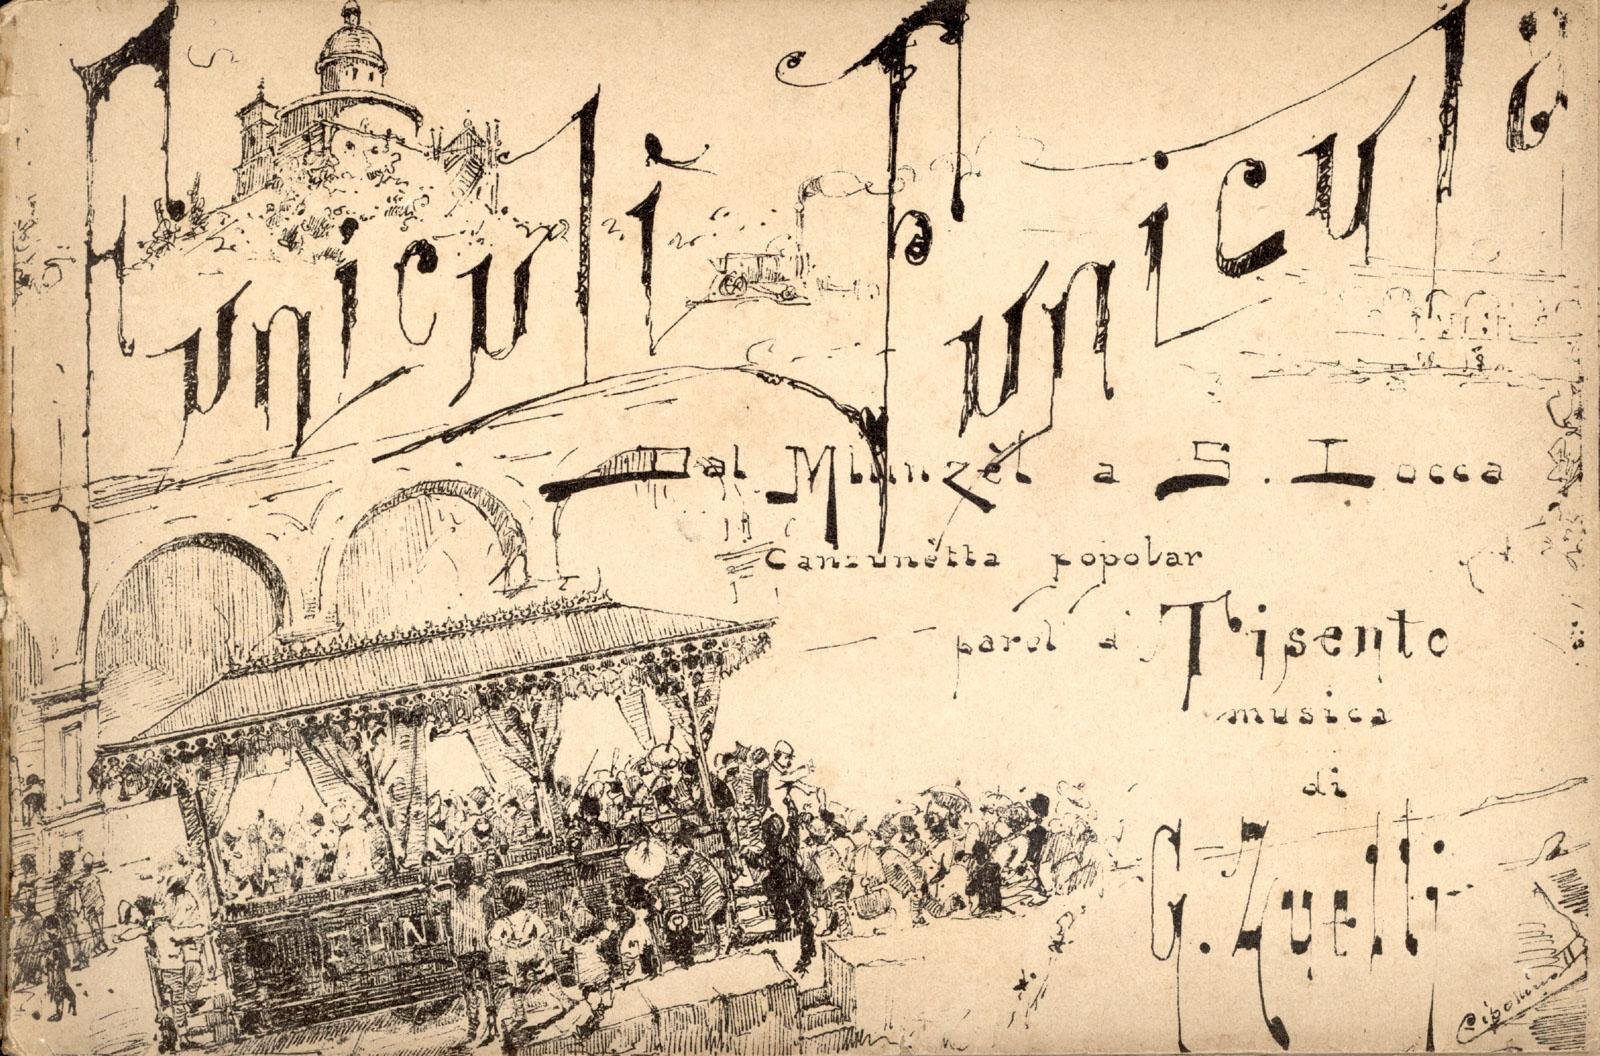 Funiculì Funiculà
Dal Mlunzèl a S. Locca
Canzunètta popolar
parol d' Tisento
musica
di
G. Zuelli
FUNI